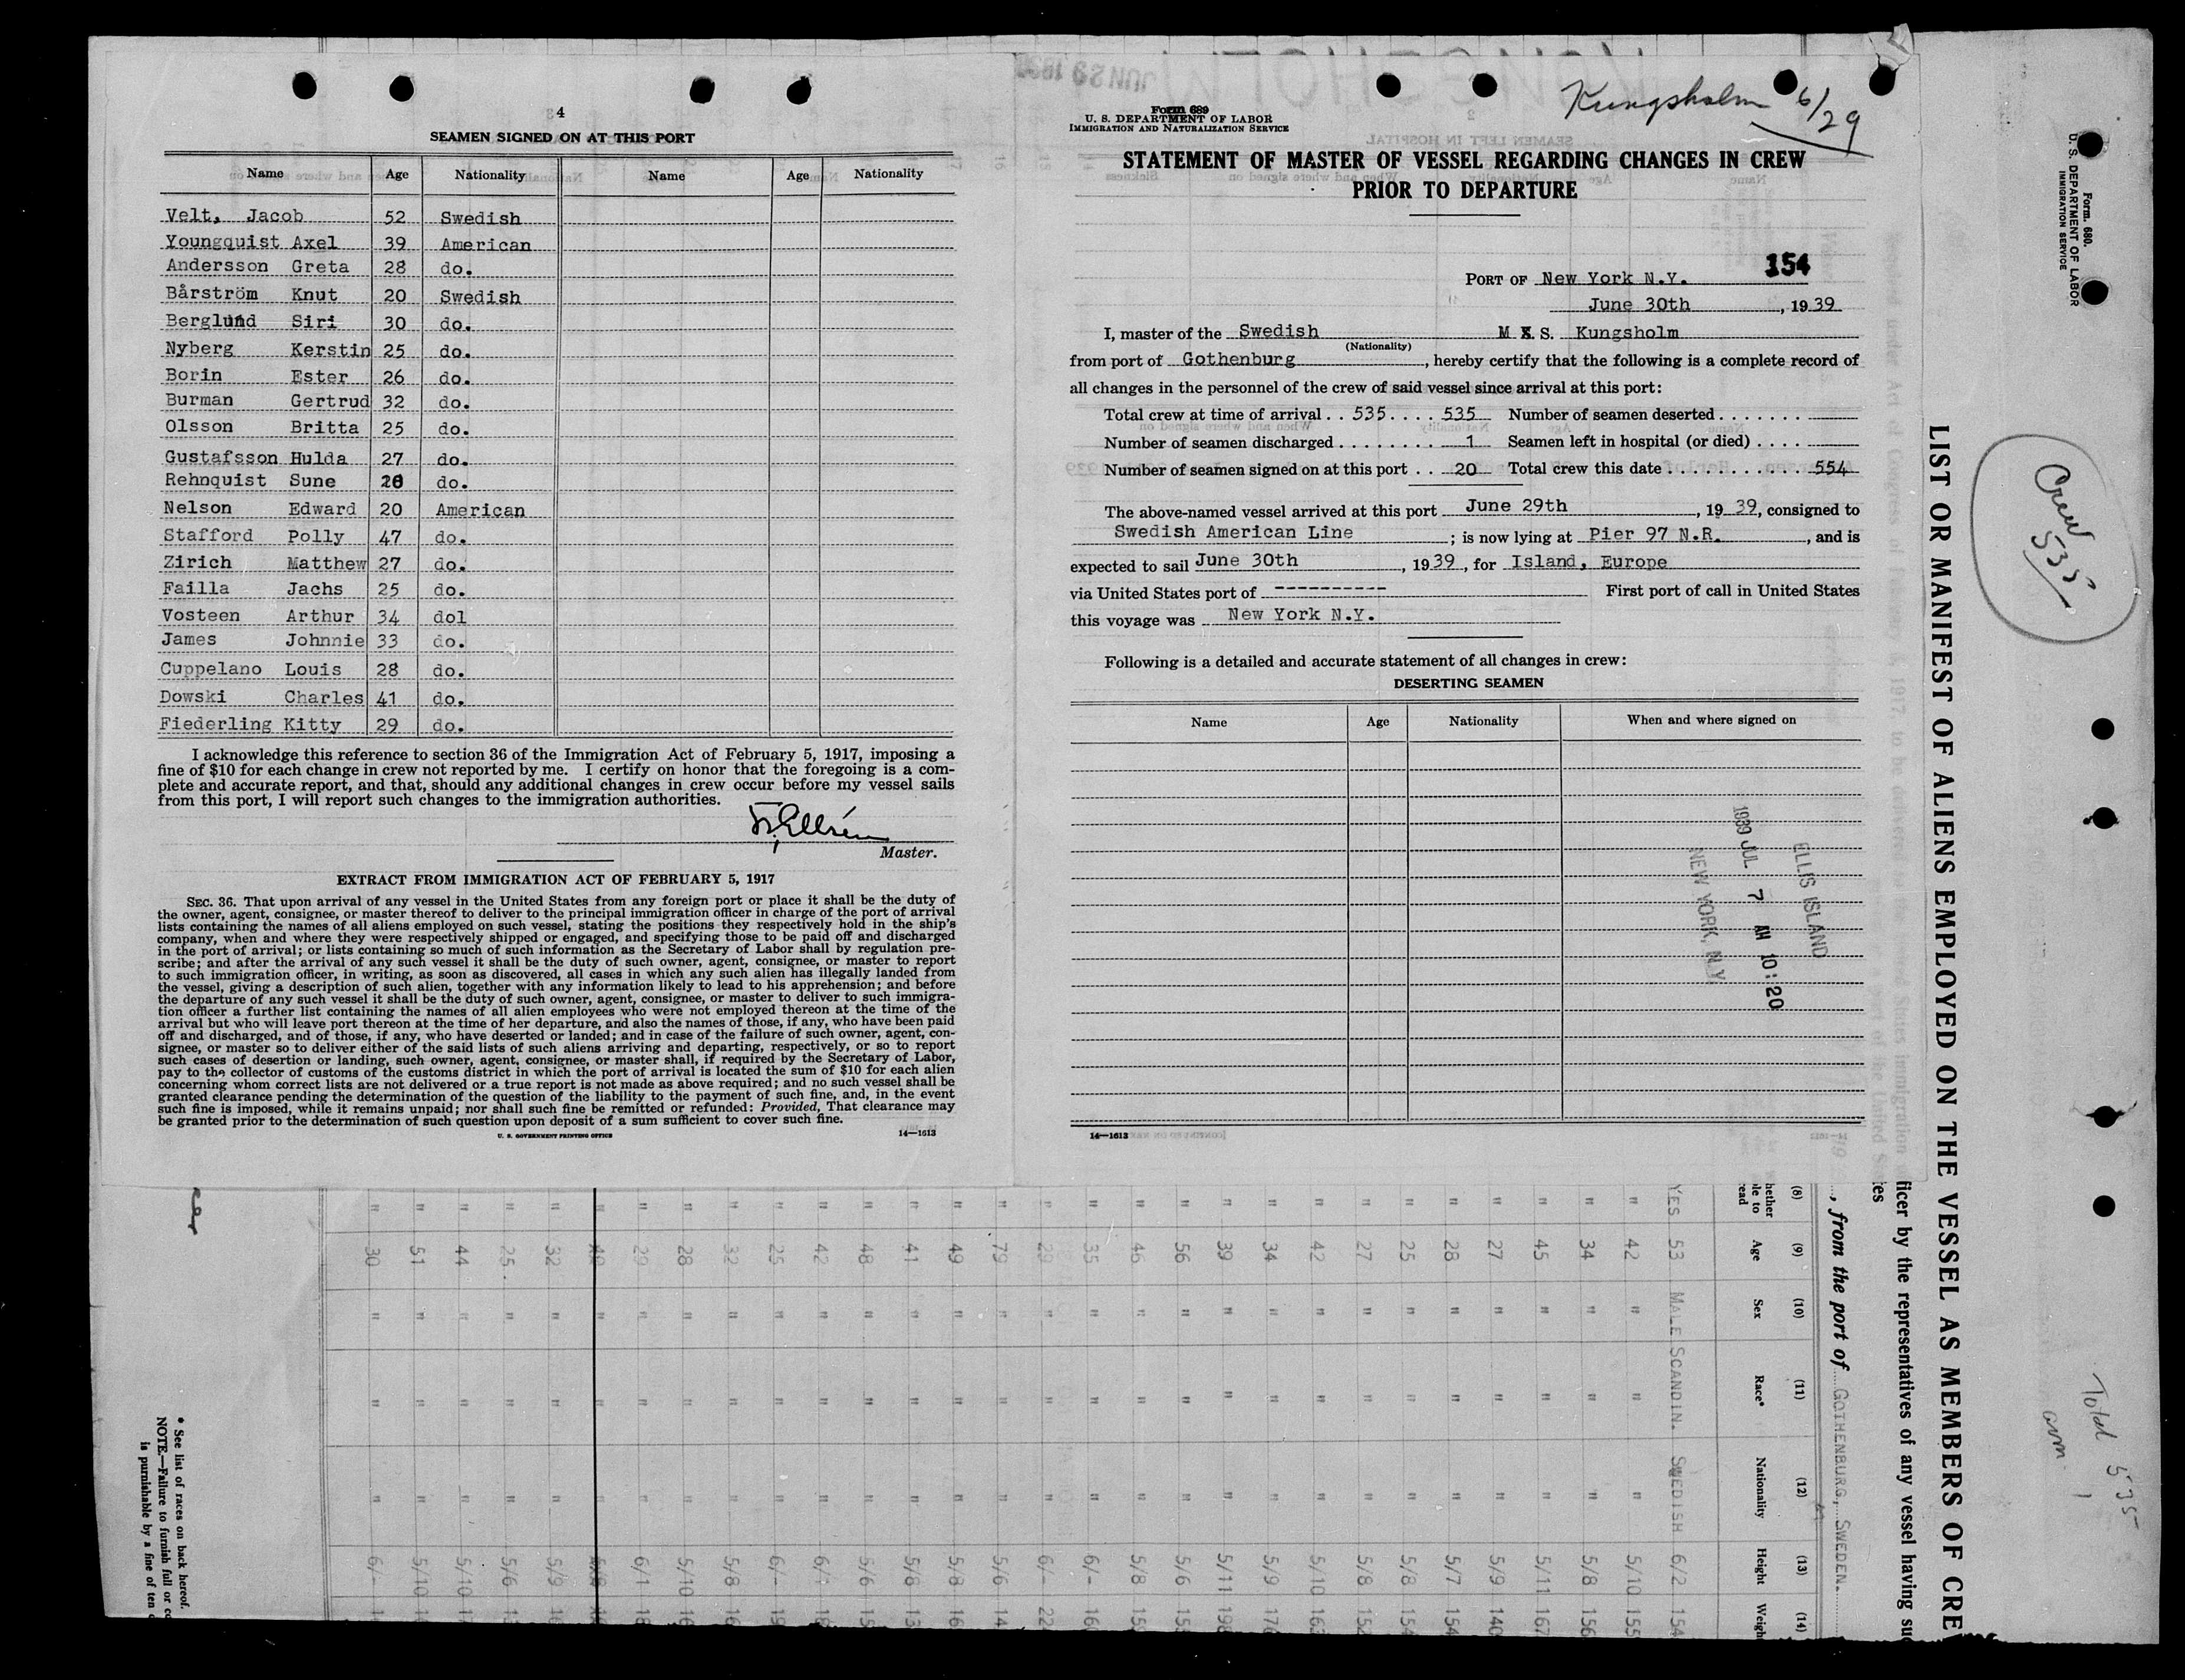 4
SEAMEN SIGNED ON AT THIS PORT
Name Age Nationality Name Age Nationality
Velt, Jacob 52 Swedish
Youngquist Axel 39 American
Andersson Greta 28 do.
Bårström Knut 20 Swedish
Berglund Siri 30 do.
Nyberg Kerstin 25 do.
Borin Ester 26 do.
Burman Gertrud 32 do.
Olsson Britta 25 do.
Gustafsson Hulda 27 do.
Rehnquist Sune do.
Nelson Edward 20 American
Stafford Polly 47 do.
Zirich Matthew 27 do.
Failla Jachs 25 do.
Vosteen Arthur 34 dol
James Johnnie 33 do.
Cuppelano Louis 28 do.
Dowski Charles 41 do.
Fiederling Kitty 29 do.
I acknowledge this reference to section 36 of the Immigration Act of February 5, 1917, imposing a
fine of $10 for each change in crew not reported by me. I certify on honor that the foregoing is a com-
plete and accurate report, and that, should any additional changes in crew occur before my vessel sails
from this port, I will report such changes to the immigration authorities.
Master.
EXTRACT FROM IMMIGRATION ACT OF FEBRUARY 5, 1917
SEC. 36. That upon arrival of any vessel in the United States from any foreign port or place it shall be the duty of
the owner, agent, consignee, or master thereof to deliver to the principal immigration officer in charge of the port of arrival
lists containing the names of all aliens employed on such vessel, stating the positions they respectively hold in the ship's
company, when and where they were respectively shipped or engaged, and specifying those to be paid off and discharged
in the port of arrival; or lists containing so much of such information as the Secretary of Labor shall by regulation pre-
scribe; and after the arrival of any such vessel it shall be the duty of such owner, agent, consignee, or master to report
to such immigration officer, in writing, as soon as discovered, all cases in which any such alien has illegally landed from
the vessel, giving a description of such alien, together with any information likely to lead to his apprehension; and before
the departure of any such vessel it shall be the duty of such owner, agent, consignee, or master to deliver to such immigra-
tion officer a further list containing the names of all alien employees who were not employed thereon at the time of the
arrival but who will leave port thereon at the time of her departure, and also the names of those, if any, who have been paid
off and discharged, and of those, if any, who have deserted or landed; and in case of the failure of such owner, agent, con-
signee, or master so to deliver either of the said lists of such aliens arriving and departing, respectively, or so to report
such cases of desertion or landing, such owner, agent, consignee, or master shall, if required by the Secretary of Labor,
pay to the collector of customs of the customs district in which the port of arrival is located the sum of $10 for each alien
concerning whom correct lists are not delivered or a true report is not made as above required; and no such vessel shall be
granted clearance pending the determination of the question of the liability to the payment of such fine, and, in the event
such fine is imposed, while it remains unpaid; nor shall such fine be remitted or refunded: Provided, That clearance may
be granted prior to the determination of such question upon deposit of a sum sufficient to cover such fine.
U. S. GOVERNMENT PRINTING OFFICE 14—1613
Form 689
U. S. DEPARTMENT OF LABOR
IMMIGRATION AND NATURALIZATION SERVICE
Kungsholm 6/29
STATEMENT OF MASTER OF VESSEL REGARDING CHANGES IN CREW
PRIOR TO DEPARTURE
154
PORT OF New York N.Y.
June 30th, 1939
I, master of the Swedish M X S. Kungsholm
(Nationality)
from port of Gothenburg, hereby certify that the following is a complete record of
all changes in the personnel of the crew of said vessel since arrival at this port:
Total crew at time of arrival . . 535 . . . . 535 Number of seamen deserted . . . . . . .
Number of seamen discharged . . . . . . . . 1 Seamen left in hospital (or died) . . . .
Number of seamen signed on at this port . . 20 Total crew this date . . . . . . . . . . . . 554
The above-named vessel arrived at this port June 29th, 19 39, consigned to
Swedish American Line; is now lying at Pier 97 N.R., and is
expected to sail June 30th, 1939, for Island, Europe
via United States port of ---------- First port of call in United States
this voyage was New York N.Y.
Following is a detailed and accurate statement of all changes in crew:
DESERTING SEAMEN
Name Age Nationality When and where signed on
ELLIS ISLAND
1939 JUL 7 AM 10:20
NEW YORK, N.Y.
14—1613
Form 680.
U. S. DEPARTMENT OF LABOR
IMMIGRATION SERVICE
Crew
535
Total 535
LIST OR MANIFEST OF ALIENS EMPLOYED ON THE VESSEL AS MEMBERS OF CRE
ficer by the representatives of any vessel having suc
, from the port of GOTHENBURG, SWEDEN.
(8) (9) (10) (11) (12) (13) (14)
hether
le to
read
Age Sex Race* Nationality Height Weigh
YES 53 MALE SCANDIN. SWEDISH 6/2 154
" 42 " " " 5/10 155
" 34 " " " 5/8 156
" 45 " " " 5/11 167
" 27 " " " 5/9 140
" 28 " " " 5/7 154
" 25 " " " 5/8 154
" 27 " " " 5/8 152
" 42 " " " 5/10 163
" 34 " " " 5/9 176
" 39 " " " 5/11 198
" 56 " " " 5/6 15
" 46 " " " 5/8 159
" 35 " " " 6/- 160
" 29 " " " 6/- 22
" 79 " " " 5/6 14
" 49 " " " 5/8 16
" 41 " " " 5/8 13
" 48 " " " 5/6 15
" 42 " " " 6/- 18
" 25 " " " 6/- 15
" 32 " " " 5/8 16
" 28 " " " 5/10 16
" 29 " " " 6/1 18
" 32 " " " 5/9 16
" 25 " " " 5/6 1
" 44 " " " 5/10 17
" 51 " " " 5/10 1
" 30 " " " 6/- 1
* See list of races on back hereof.
NOTE.—Failure to furnish full or co
is punishable by a fine of ten